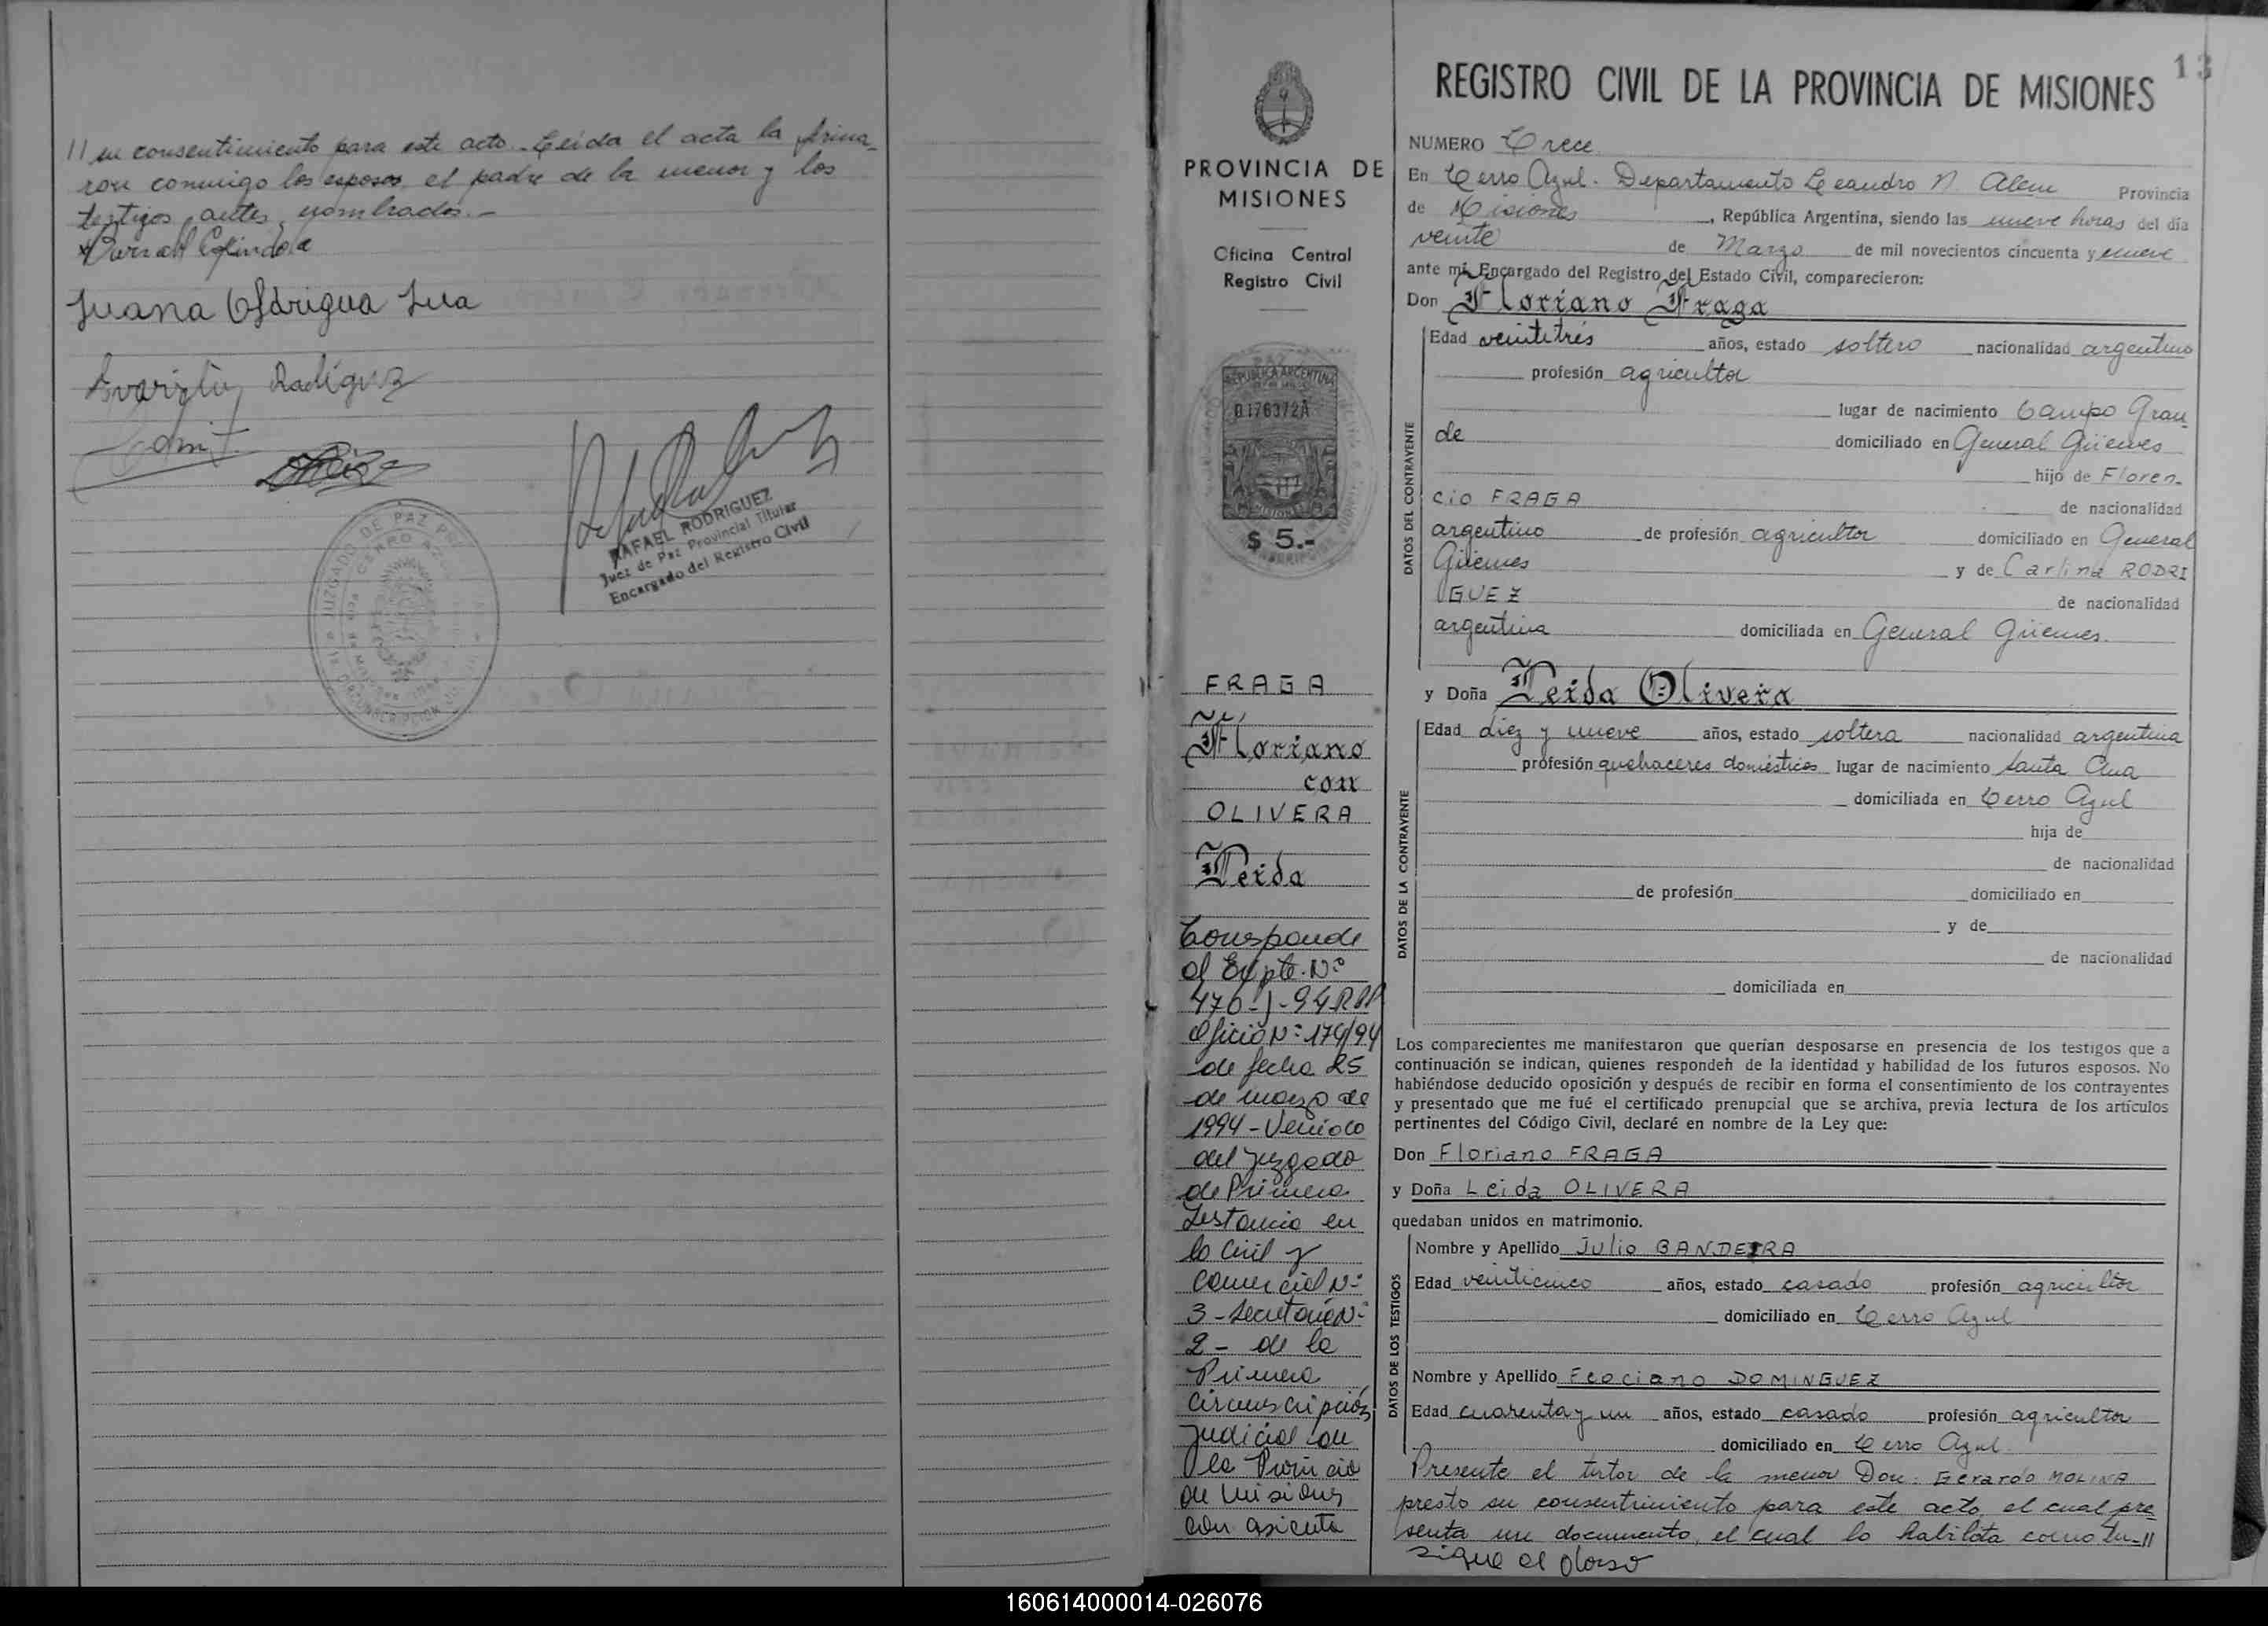 // su consentimiento para este acto.- Leida el acta la firma-
ron conmigo los esposos, el padre de la menor y los
testigos antes nombrados.-
Juana
RAFAEL RODRIGUEZ
Juez de Paz Provincial Titular
Encargado del Registro Civil
JUZGADO DE PAZ
CERRO AZUL
PROVINCIA DE
MISIONES
Oficina Central
Registro Civil
REPUBLICA ARGENTINA
0176372A
MISIONES
$ 5.-
FRAGA
Floriano
con
OLIVERA
Leida
Corresponde
al Expte. Nº
476-J-94 RPP
Oficio Nº 174/94
de fecha 25
de marzo de
1994 - Venido
del Juzgado
de Primera
Instancia en
lo Civil y
Comercial Nº
3 - Secretaria Nº
2 - de la
Primera
Circunscripción
Judicial de
la Provincia
de Misiones
con asiento
13
REGISTRO CIVIL DE LA PROVINCIA DE MISIONES
NUMERO Trece
En Cerro Azul. Departamento Leandro N. Alem Provincia
de Misiones, República Argentina, siendo las nueve horas del día
veinte de Marzo de mil novecientos cincuenta y nueve
ante mí, Encargado del Registro del Estado Civil, comparecieron:
Don Floriano Fraga
DATOS DEL CONTRAYENTE
Edad veintitrés años, estado soltero nacionalidad argentino
profesión agricultor
lugar de nacimiento Campo Gran
de domiciliado en General Güemes
hijo de Floren-
cio FRAGA de nacionalidad
argentino de profesión agricultor domiciliado en General
Güemes y de Carlina RODRI
GUEZ de nacionalidad
argentina domiciliada en General Güemes.
y Doña Leida Olivera
DATOS DE LA CONTRAYENTE
Edad diez y nueve años, estado soltera nacionalidad argentina
profesión quehaceres domésticos lugar de nacimiento Santa Ana
domiciliada en Cerro Azul
hija de
de nacionalidad
de profesión domiciliado en
y de
de nacionalidad
domiciliada en
Los comparecientes me manifestaron que querían desposarse en presencia de los testigos que a
continuación se indican, quienes responden de la identidad y habilidad de los futuros esposos. No
habiéndose deducido oposición y después de recibir en forma el consentimiento de los contrayentes
y presentado que me fué el certificado prenupcial que se archiva, previa lectura de los artículos
pertinentes del Código Civil, declaré en nombre de la Ley que:
Don Floriano FRAGA
y Doña Leida OLIVERA
quedaban unidos en matrimonio.
DATOS DE LOS TESTIGOS
Nombre y Apellido Julio BANDEIRA
Edad veinticinco años, estado casado profesión agricultor
domiciliado en Cerro Azul
Nombre y Apellido Feliciano DOMINGUEZ
Edad cuarenta y un años, estado casado profesión agricultor
domiciliado en Cerro Azul
Presente el tutor de la menor Don: Gerardo MOLINA
presto su consentimiento para este acto, el cual pre
senta un documento, el cual lo habilita como tu-//
sigue al dorso
160614000014-026076